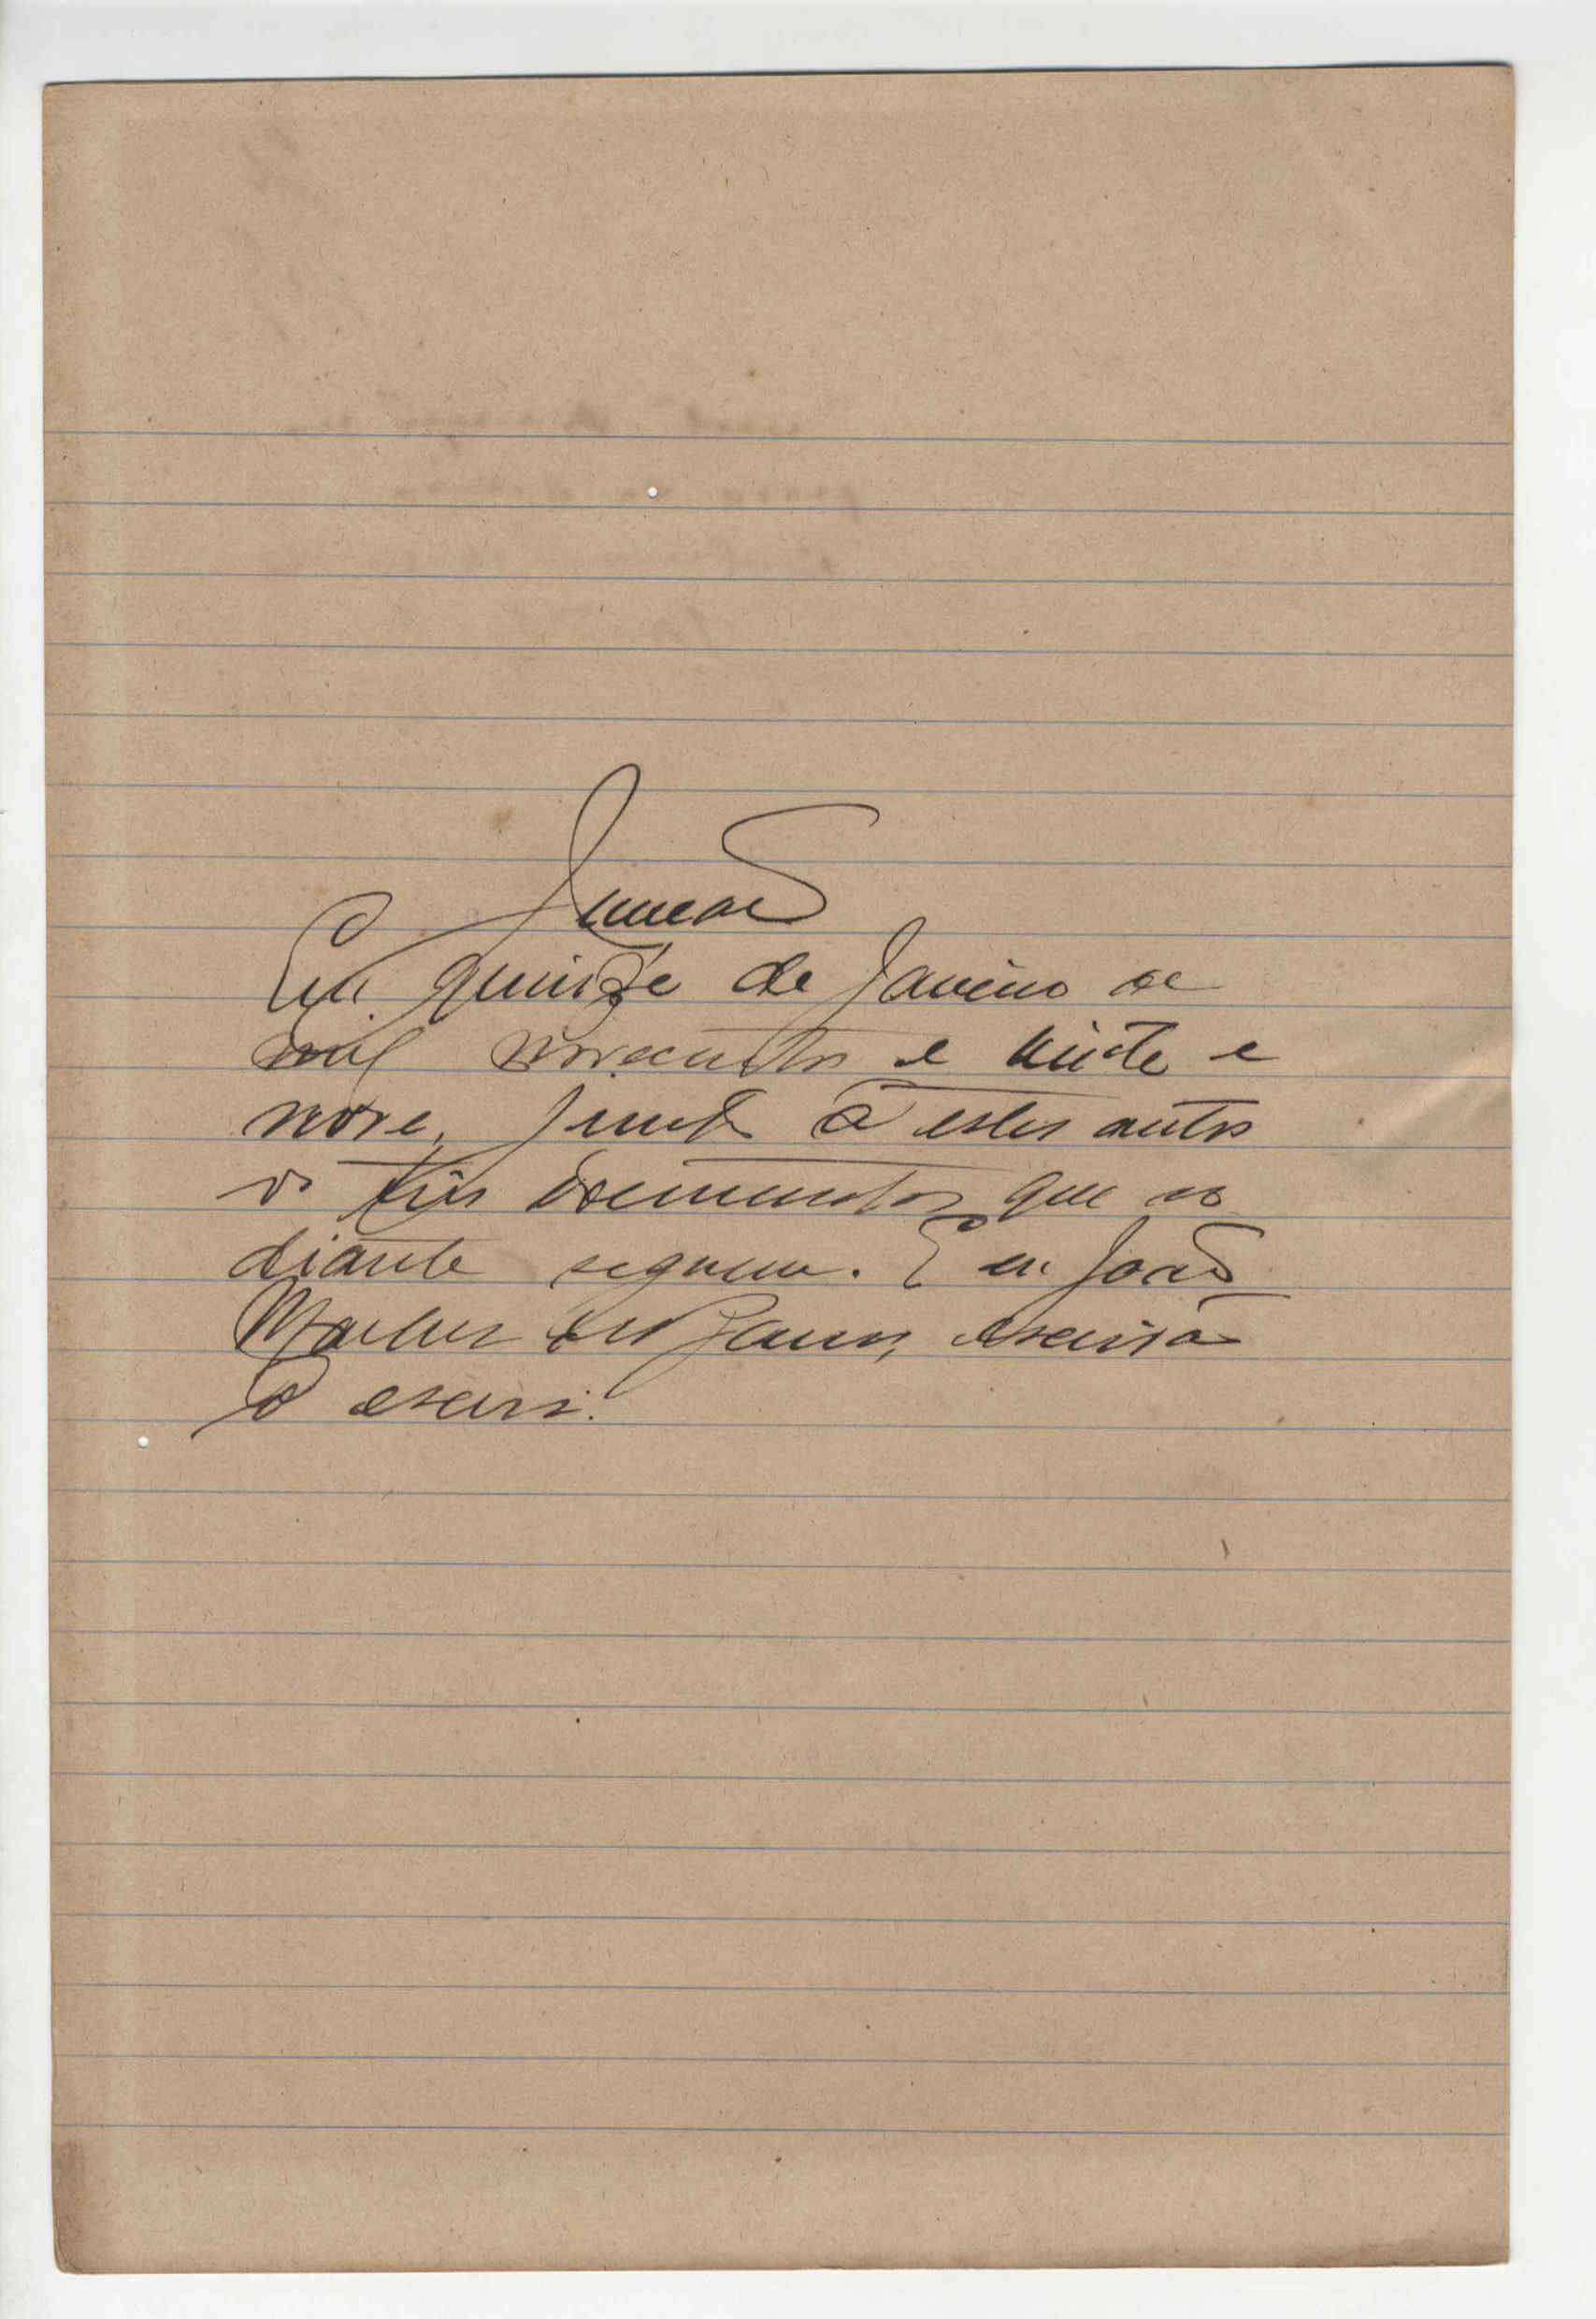 Juncão
Em quinze de Janeiro de
mil novecentos e vinte e
nove, junto á estes autos
os tres documentos que ao
diante seguem. E eu João
escrivão
o escrevi.